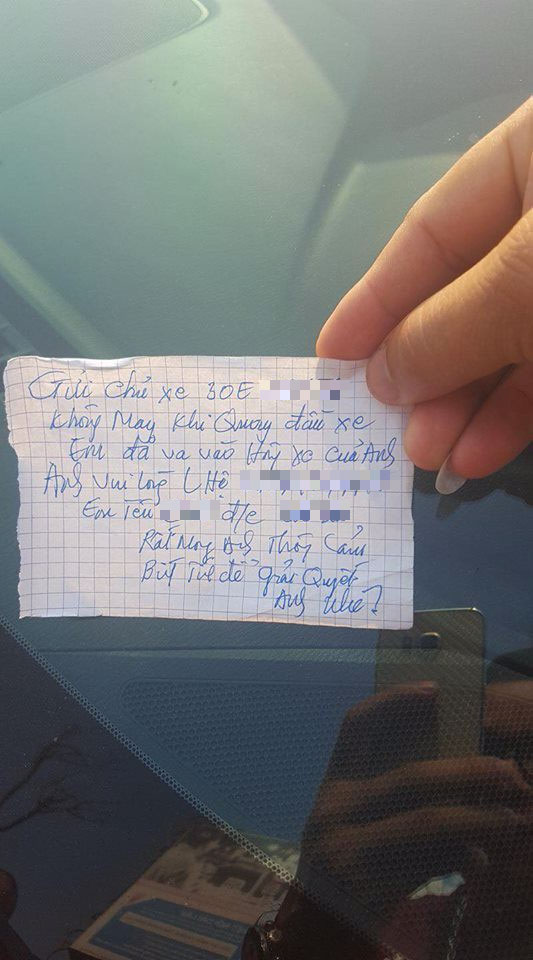 Gửi chủ xe 30E
Không May Khi Quay đầu xe
Em đã va vào xe của Anh
Anh vui lòng LHệ
Em Tên đ/c
Rất Mong Anh Thông Cảm
để giải Quyết
Anh Nhé?